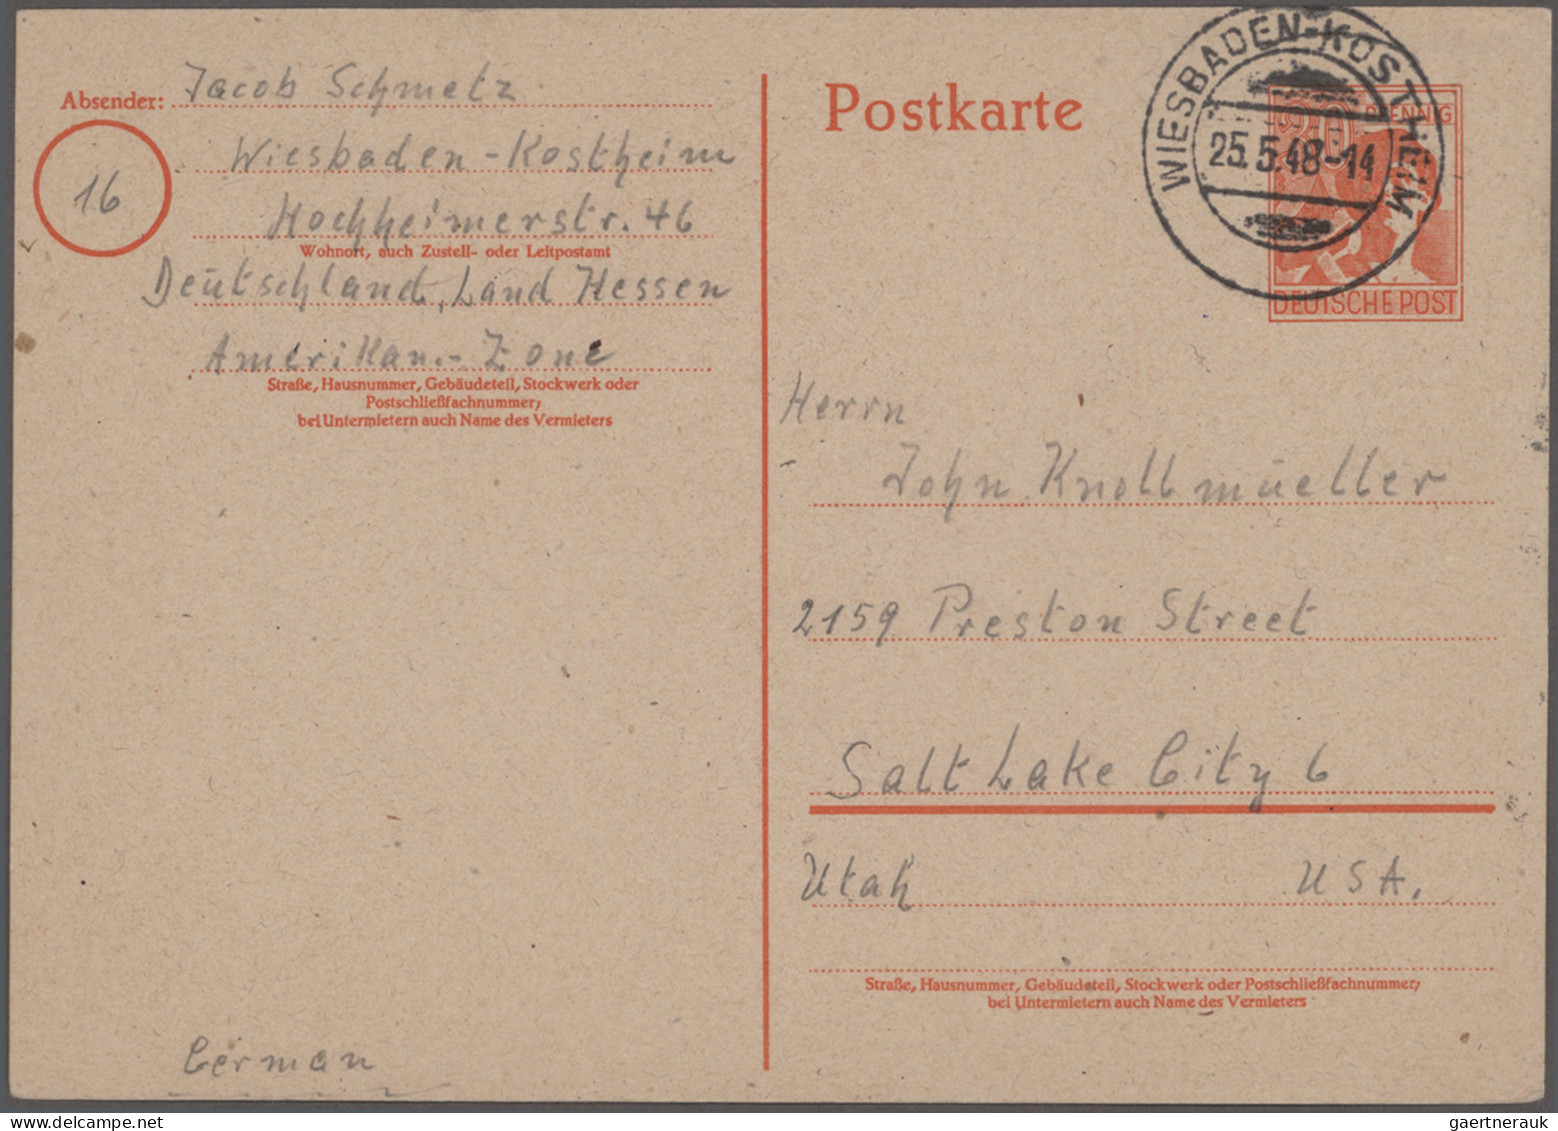 Absender: Jacob Schmetz
16
Wiesbaden-Kostheim
Hochheimerstr. 46
Wohnort, auch Zustell- oder Leitpostamt
Deutschland, Land Hessen
Amerikan.- Zone
Straße, Hausnummer, Gebäudeteil, Stockwerk oder
Postschließfachnummer;
bei Untermietern auch Name des Vermieters
German
Postkarte
WIESBADEN-KOSTHEIM
25.5.48-14
PFENNIG
DEUTSCHE POST
Herrn
John Knollmüeller
2159 Preston Street
Salt Lake City 6
Utah USA.
Straße, Hausnummer, Gebäudeteil, Stockwerk oder Postschließfachnummer;
bei Untermietern auch Name des Vermieters
gaertnerauk